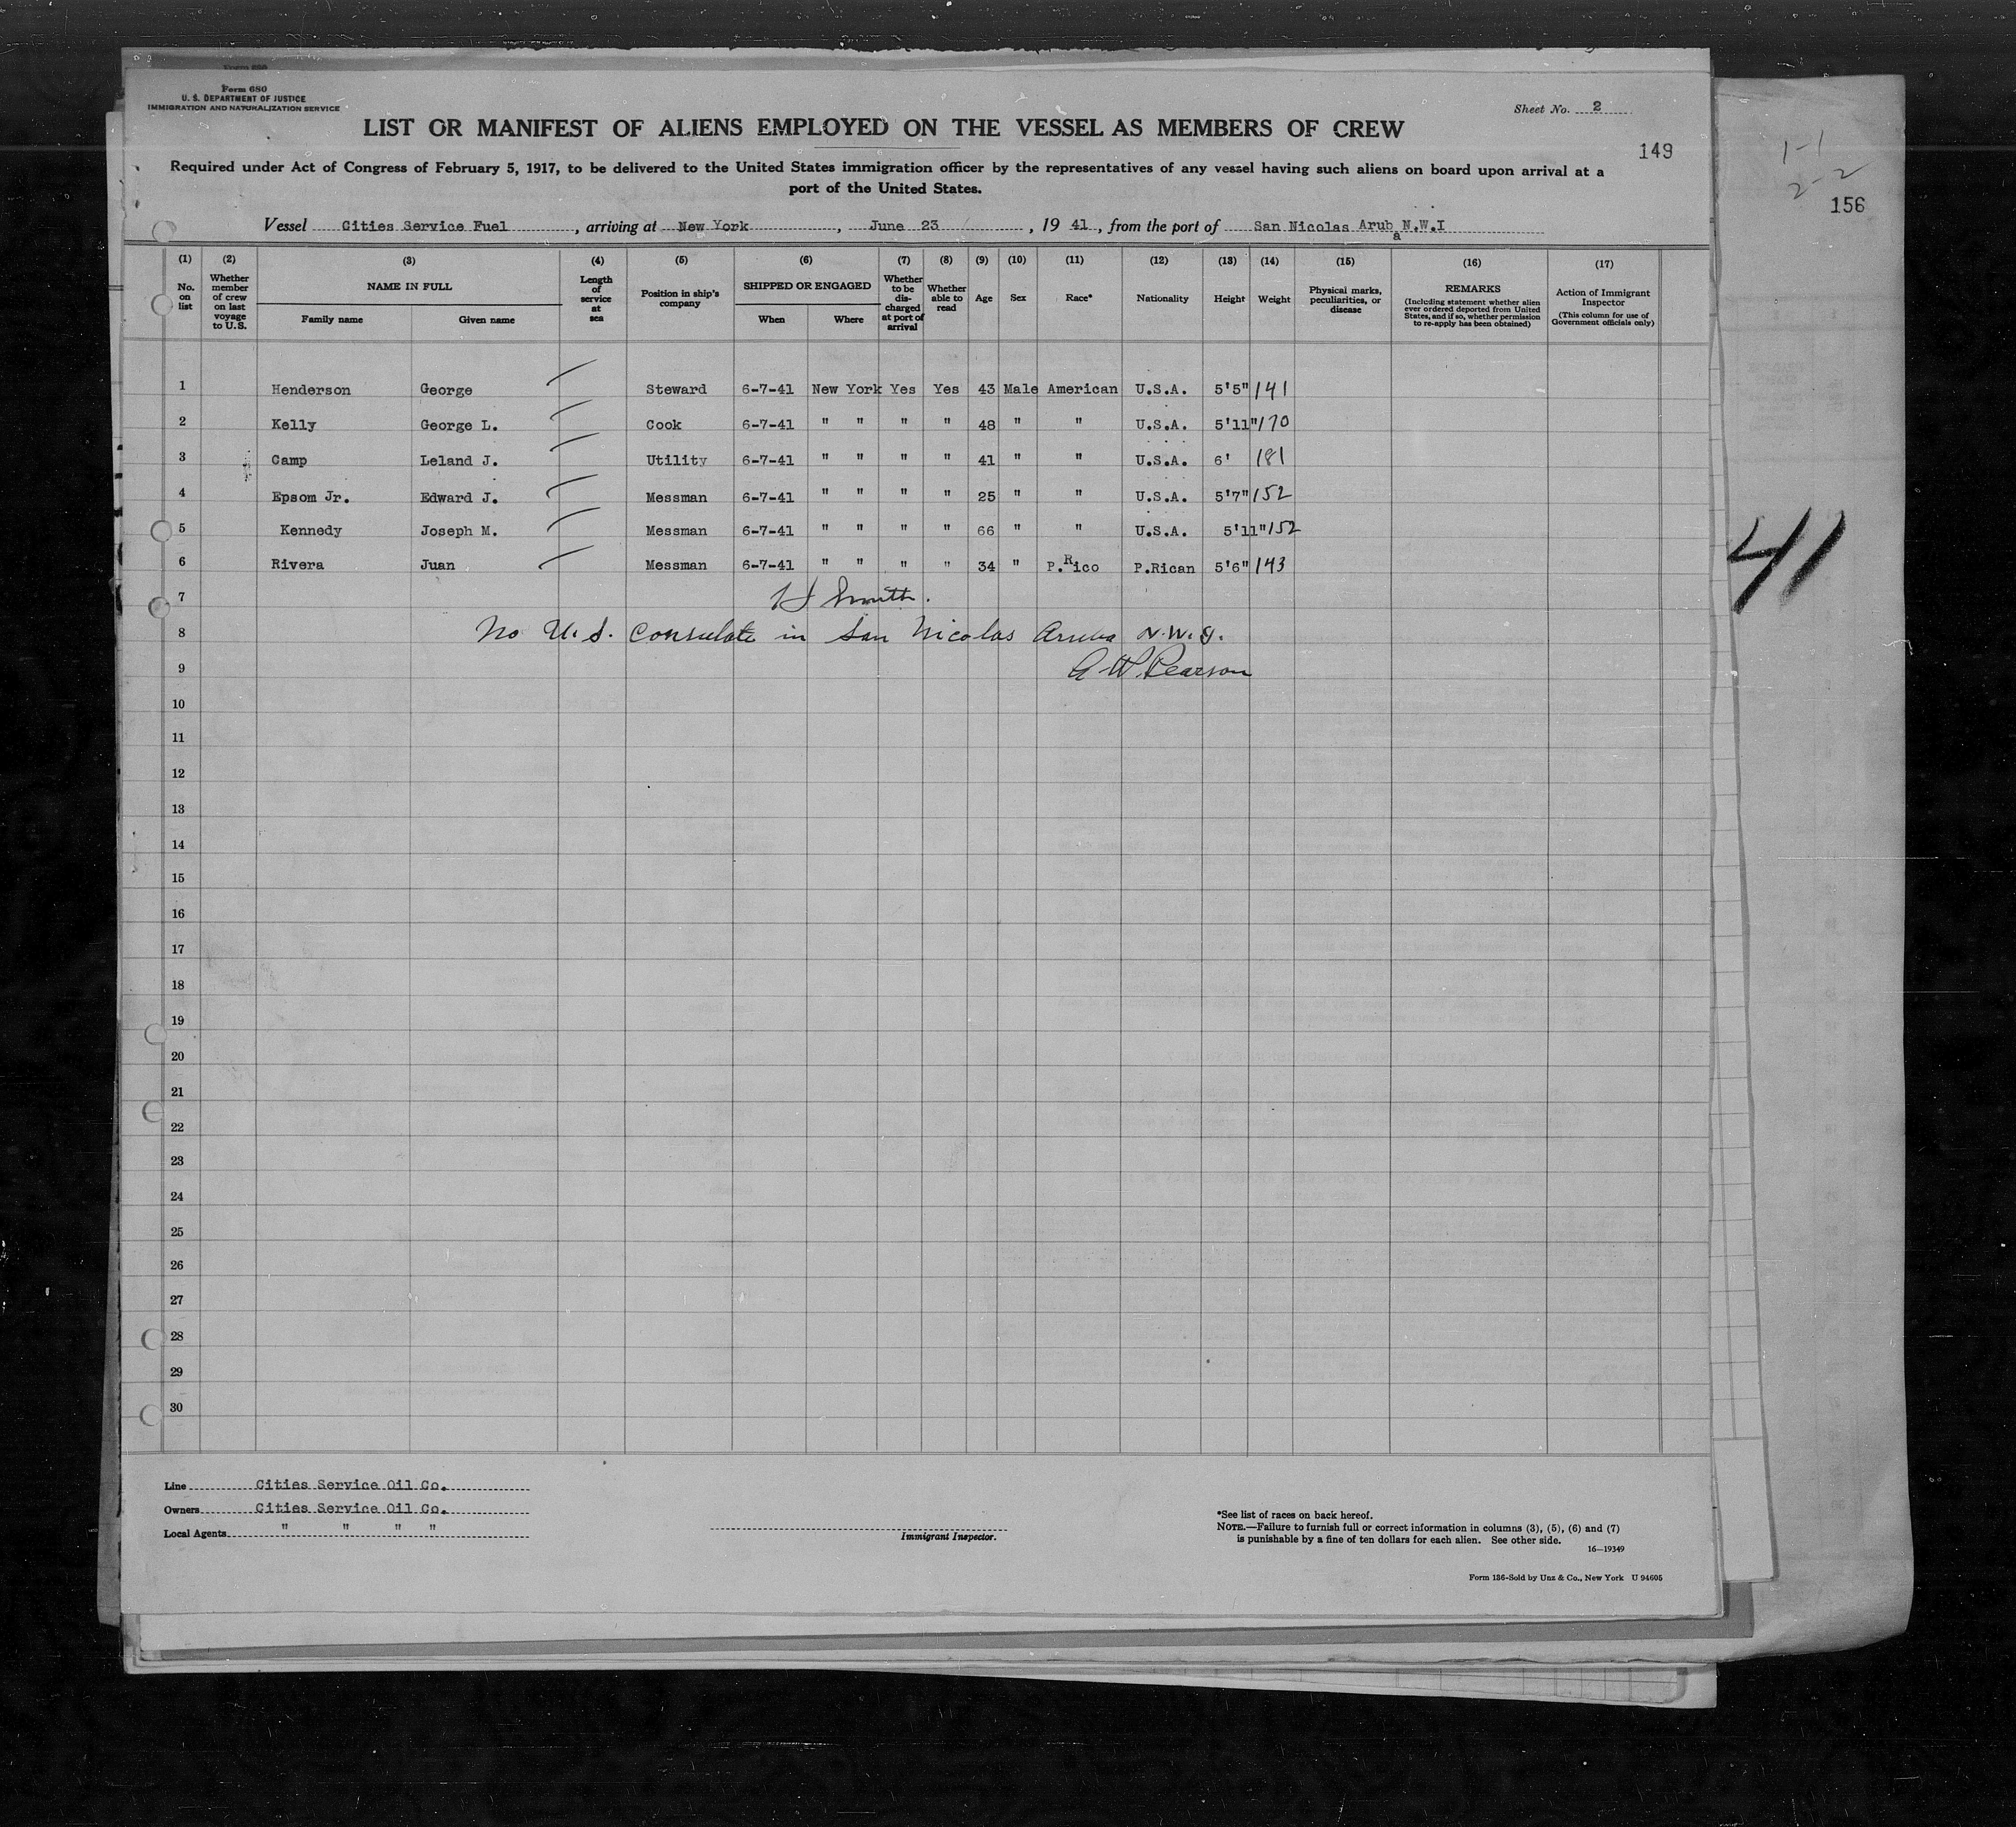 Form 680
U. S. DEPARTMENT OF JUSTICE
IMMIGRATION AND NATURALIZATION SERVICE
Sheet No. 2
LIST OR MANIFEST OF ALIENS EMPLOYED ON THE VESSEL AS MEMBERS OF CREW
149
Required under Act of Congress of February 5, 1917, to be delivered to the United States immigration officer by the representatives of any vessel having such aliens on board upon arrival at a
port of the United States.
1-1
2-2
156
Vessel Cities Service Fuel, arriving at New York, June 23, 1941, from the port of San Nicolas Aruba N.W.I
(1) (2) (3) (4) (5) (6) (7) (8) (9) (10) (11) (12) (13) (14) (15) (16) (17)
No. on list
Whether member of crew on last voyage to U.S.
NAME IN FULL
Family name Given name
Length of service at sea
Position in ship's company
SHIPPED OR ENGAGED
When Where
Whether to be discharged at port of arrival
Whether able to read
Age
Sex
Race*
Nationality
Height
Weight
Physical marks, peculiarities, or disease
REMARKS
(Including statement whether alien ever ordered deported from United States, and if so, whether permission to re-apply has been obtained)
Action of Immigrant Inspector
(This column for use of Government officials only)
1 Henderson George Steward 6-7-41 New York Yes Yes 43 Male American U.S.A. 5'5" 141
2 Kelly George L. Cook 6-7-41 " " " " 48 " " U.S.A. 5'11" 170
3 Camp Leland J. Utility 6-7-41 " " " " 41 " " U.S.A. 6' 181
4 Epsom Jr. Edward J. Messman 6-7-41 " " " " 25 " " U.S.A. 5'7" 152
5 Kennedy Joseph M. Messman 6-7-41 " " " " 66 " " U.S.A. 5'11" 152
6 Rivera Juan Messman 6-7-41 " " " " 34 " P.Rico P.Rican 5'6" 143
41
7 Smith.
8 No U.S. Consulate in San Nicolas Aruba N.W.I.
9 A W Pearson
10
11
12
13
14
15
16
17
18
19
20
21
22
23
24
25
26
27
28
29
30
Line Cities Service Oil Co.
Owners Cities Service Oil Co.
Local Agents " " " "
Immigrant Inspector.
*See list of races on back hereof.
NOTE.—Failure to furnish full or correct information in columns (3), (5), (6) and (7)
is punishable by a fine of ten dollars for each alien. See other side.
16—19349
Form 136-Sold by Unz & Co., New York U 94605